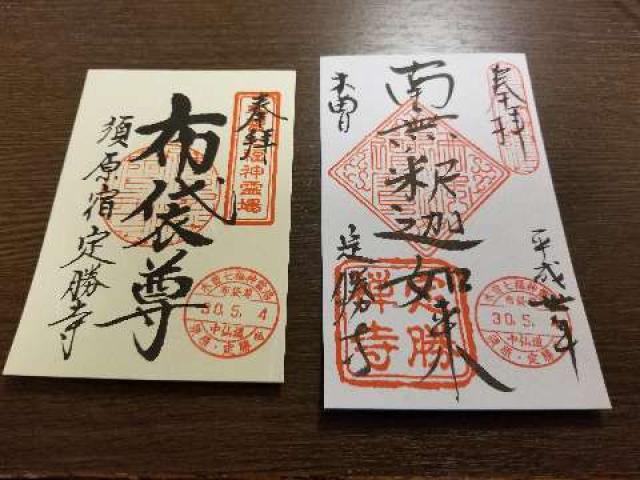 奉拝
布袋尊
須原宿定勝寺
30.5.4
中仙道
須原・定勝寺
奉拝
平成卅年
南無釈迦如来
木曽
定勝寺
定勝禅寺
30.5.4
中仙道
須原・定勝寺